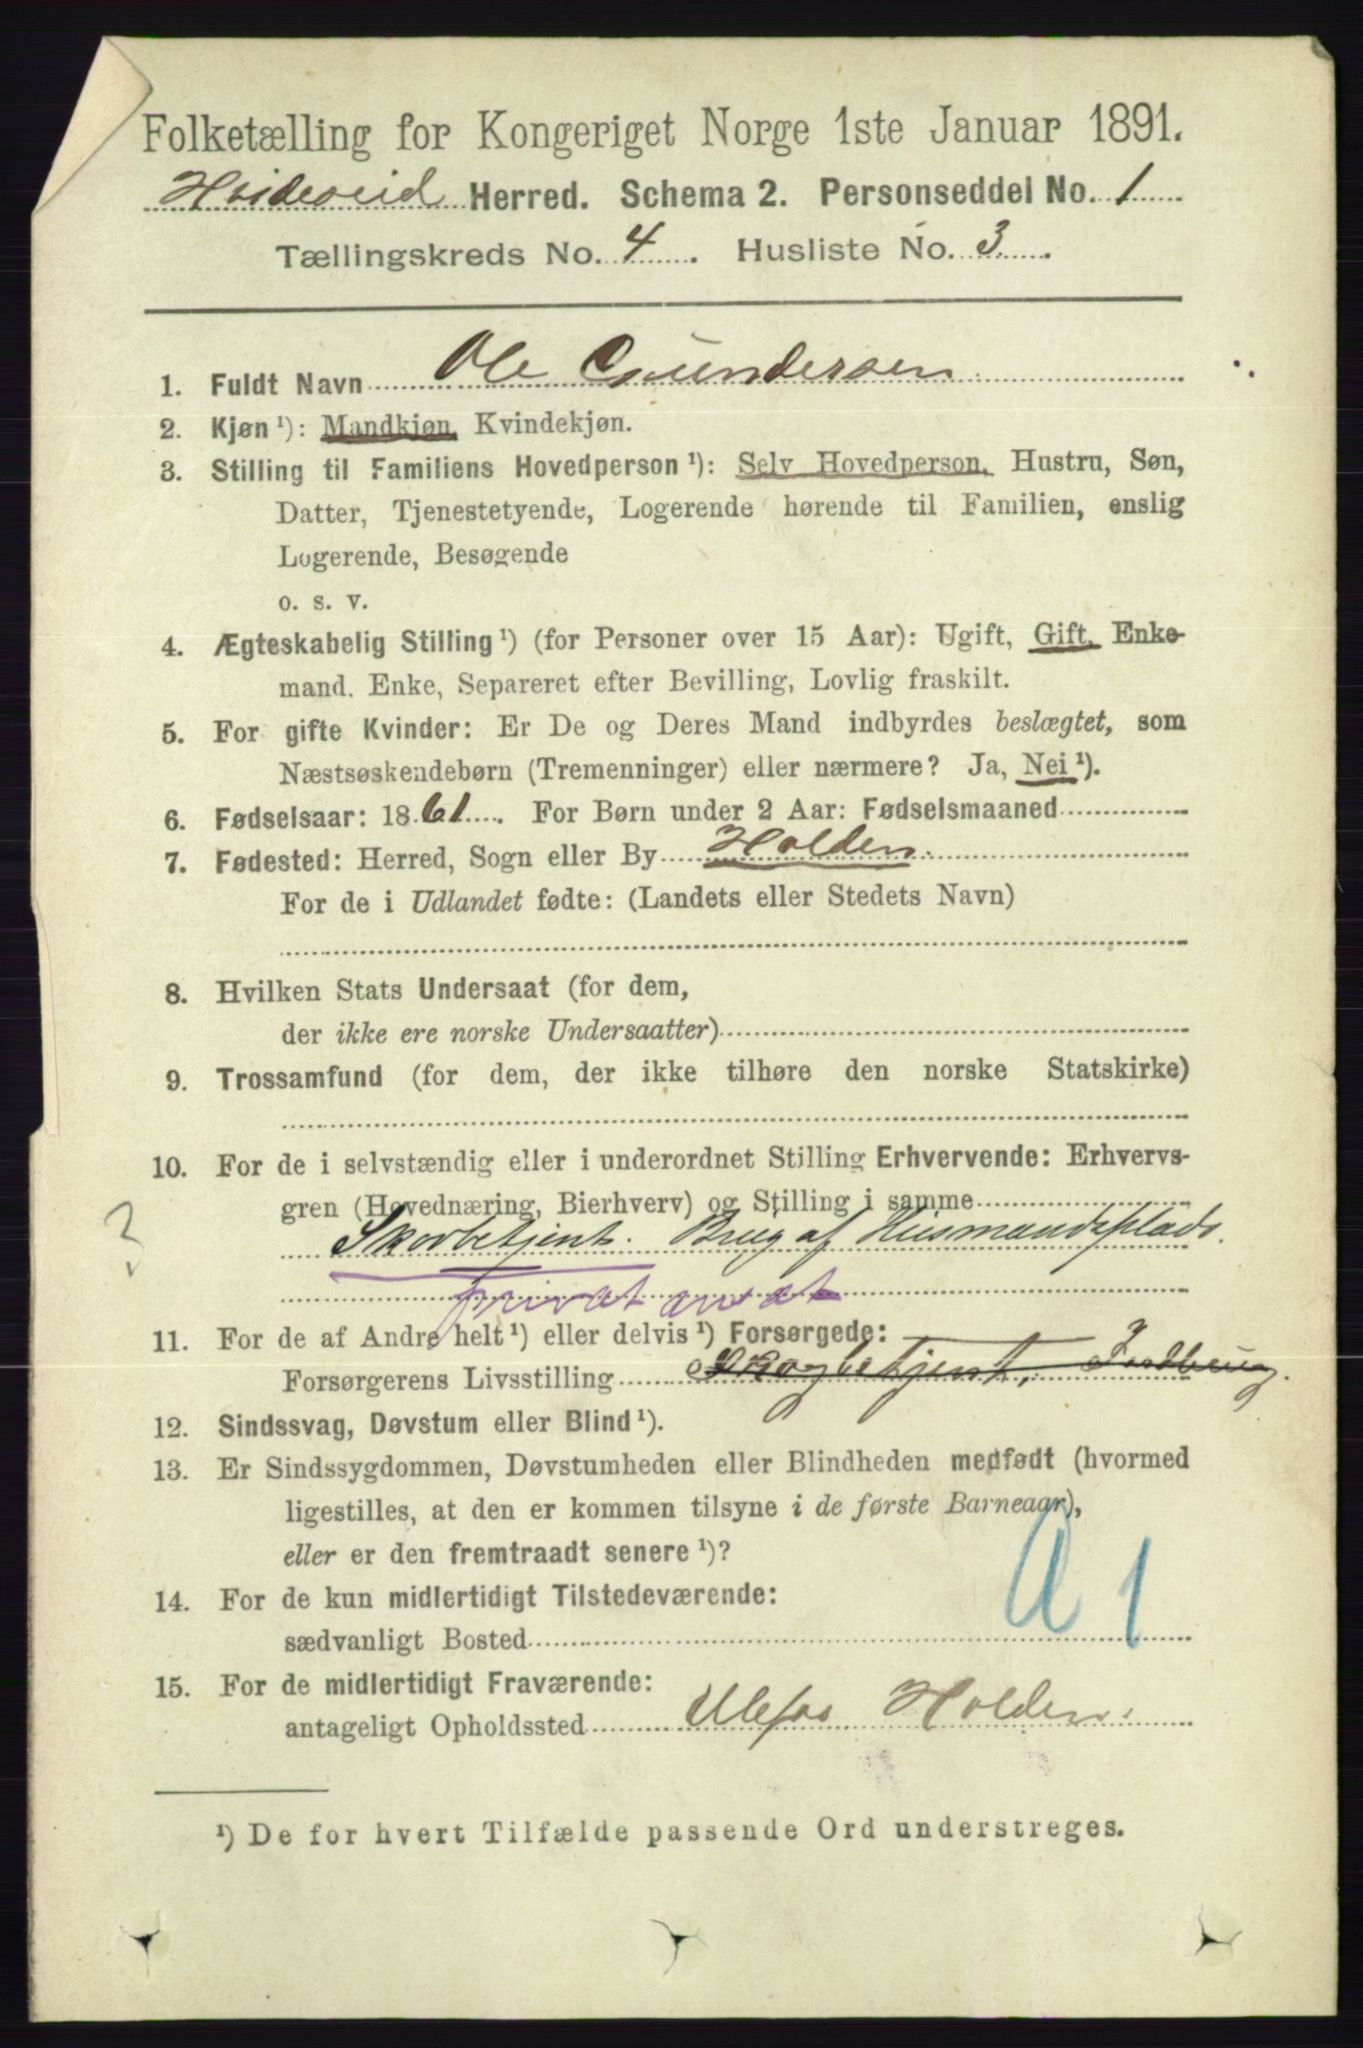 Folketælling for Kongeriget Norge 1ste Januar 1891.
Hvideseid Herred. Schema 2. Personseddel No. 1
Tællingskreds No. 4. Husliste No. 3.
1. Fuldt Navn Ole Gundersen
2. Kjøn ¹): Mandkjøn, Kvindekjøn.
3. Stilling til Familiens Hovedperson ¹): Selv Hovedperson, Hustru, Søn,
Datter, Tjenestetyende, Logerende hørende til Familien, enslig
Logerende, Besøgende
o. s. v.
4. Ægteskabelig Stilling ¹) (for Personer over 15 Aar): Ugift, Gift, Enke-
mand, Enke, Separeret efter Bevilling, Lovlig fraskilt.
5. For gifte Kvinder: Er De og Deres Mand indbyrdes beslægtet, som
Næstsøskendebørn (Tremenninger) eller nærmere? Ja, Nei ¹).
6. Fødselsaar: 1861. For Børn under 2 Aar: Fødselsmaaned
7. Fødested: Herred, Sogn eller By Holden.
For de i Udlandet fødte: (Landets eller Stedets Navn)
8. Hvilken Stats Undersaat (for dem,
der ikke ere norske Undersaatter)
9. Trossamfund (for dem, der ikke tilhøre den norske Statskirke)
10. For de i selvstændig eller i underordnet Stilling Erhvervende: Erhvervs-
gren (Hovednæring, Bierhverv) og Stilling i samme
Skovbetjent. Brug af Husmandsplads.
privat ansat
11. For de af Andre helt ¹) eller delvis ¹) Forsørgede:
Forsørgerens Livsstilling Skogbetjent, Jordbrug.
12. Sindssvag, Døvstum eller Blind ¹).
13. Er Sindssygdommen, Døvstumheden eller Blindheden medfødt (hvormed
ligestilles, at den er kommen tilsyne i de første Barneaar),
eller er den fremtraadt senere ¹)?
14. For de kun midlertidigt Tilstedeværende:
sædvanligt Bosted
a 1
15. For de midlertidigt Fraværende:
antageligt Opholdssted Ulefos Holden.
¹) De for hvert Tilfælde passende Ord understreges.